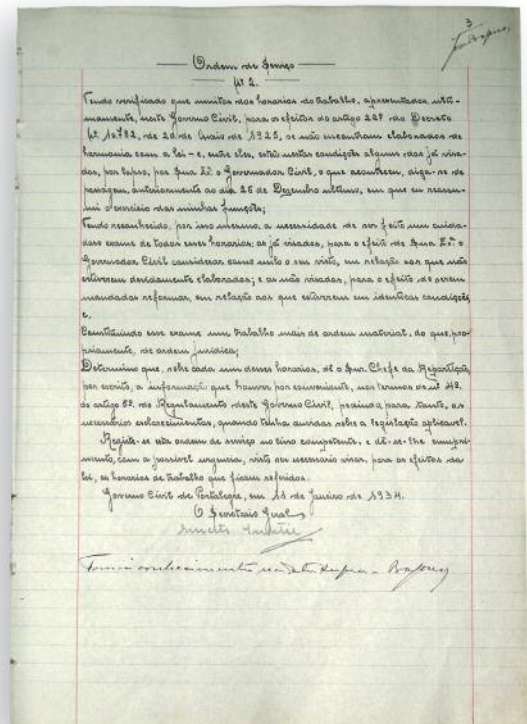 3
Ordem de Serviço
Nº 2.
Tendo verificado que muitos dos horarios do trabalho, apresentados, ulti-
mamente, neste Governo Civil, para os efeitos do artigo 22º do Decreto
Nº 10.782, de 20 de Maio de 1925, se não encontram elaborados de
harmonia com a lei - e, entre eles, estão nestas condições alguns dos já visa-
dos, por lapso, por Sua Exª o Governador Civil, o que aconteceu, diga-se de
passagem, anteriormente ao dia 26 de Dezembro ultimo, em que eu reassu-
mi o exercicio das minhas funções;
Tendo reconhecido, por isso mesmo, a necessidade de ser feito um cuida-
doso exame de todos esses horarios, os já visados, para o efeito de Sua Exª o
Governador Civil considerar como nulo o seu visto, em relação aos que não
estiverem devidamente elaborados; e os não visados, para o efeito de serem
mandados reformar, em relação aos que estiverem em identicas condições
e,
Constituindo esse exame um trabalho mais de ordem material, do que, pro-
priamente, de ordem juridica;
Determino que, sobre cada um desses horarios, dê o Snr. Chefe da Repartição,
por escrito, a informação que houver por conveniente, nos termos do nº 4º
do artigo 6º do Regulamento deste Governo Civil, pedindo, para tanto, os
necessarios esclarecimentos, quando tenha duvidas sobre a legislação aplicavel.
Registe-se esta ordem de serviço no livro competente, e dê-se-lhe cumpri-
mento, com a possivel urgencia, visto ser necessario visar, para os efeitos da
lei, os horarios de trabalho que ficam referidos.
Governo Civil de Portalegre, em 11 de Janeiro de 1934.
O Secretario Geral,
Tomei conhecimento na data supra -